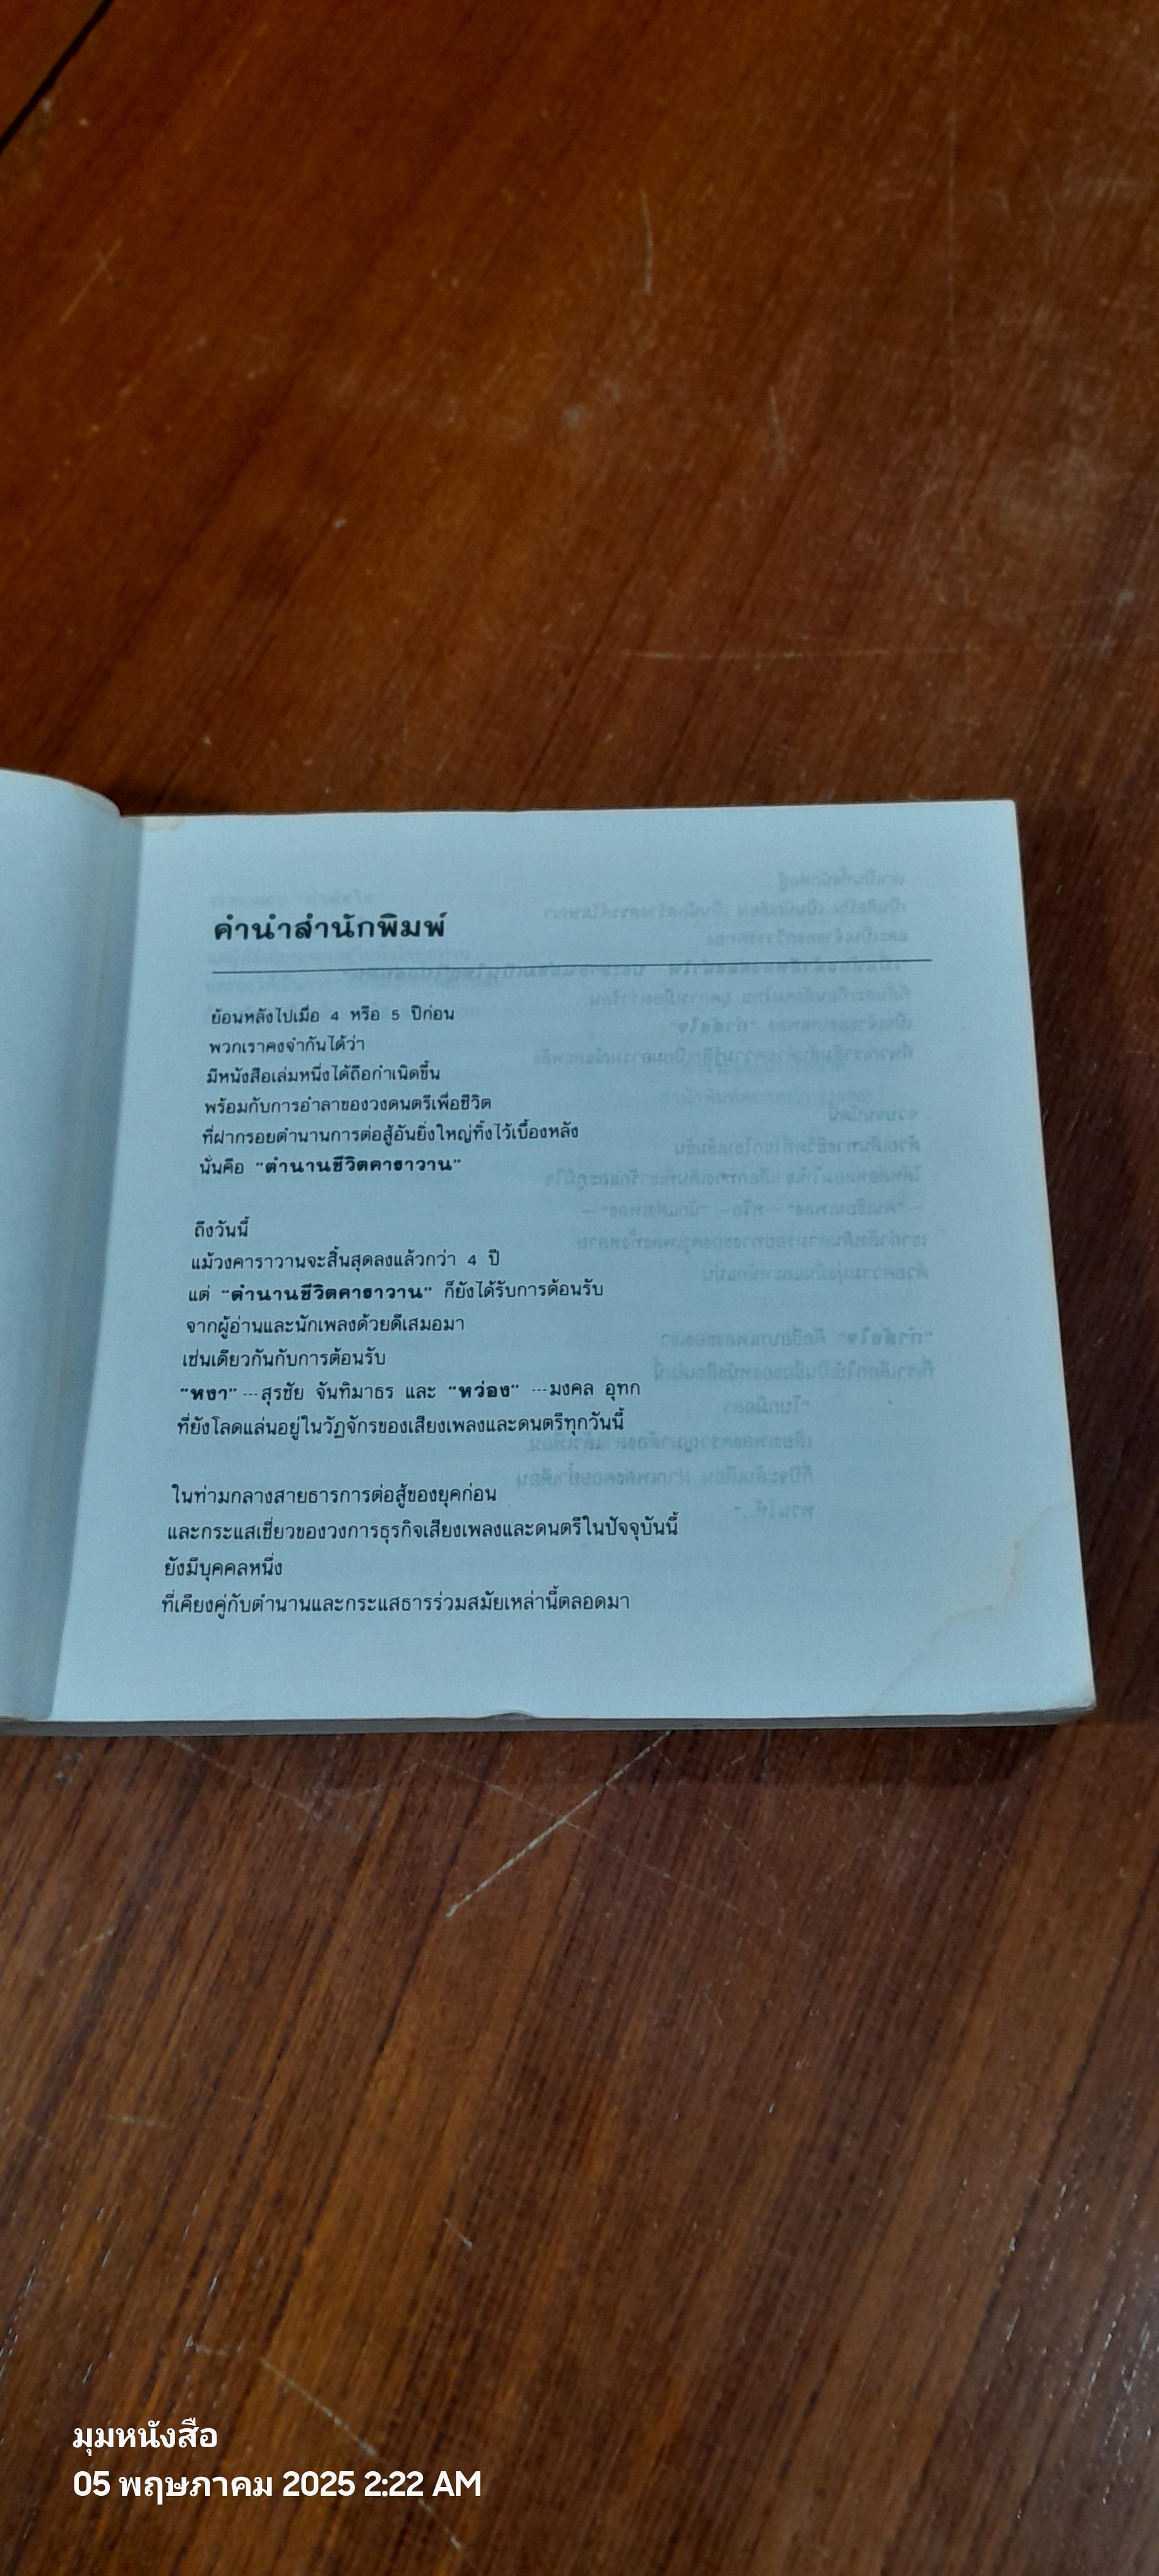 คำนำสำนักพิมพ์
ย้อนหลังไปเมื่อ 4 หรือ 5 ปีก่อน
พวกเราคงจำกันได้ว่า
มีหนังสือเล่มหนึ่งได้ถือกำเนิดขึ้น
พร้อมกับการอำลาของวงดนตรีเพื่อชีวิต
ที่ฝากรอยตำนานการต่อสู้อันยิ่งใหญ่ทิ้งไว้เบื้องหลัง
นั่นคือ “ตำนานชีวิตคาราวาน”
ถึงวันนี้
แม้วงคาราวานจะสิ้นสุดลงแล้วกว่า 4 ปี
แต่ “ตำนานชีวิตคาราวาน” ก็ยังได้รับการต้อนรับ
จากผู้อ่านและนักเพลงด้วยดีเสมอมา
เช่นเดียวกันกับการต้อนรับ
“หงา” ---สุรชัย จันทิมาธร และ “หว่อง” ---มงคล อุทก
ที่ยังโลดแล่นอยู่ในวัฏจักรของเสียงเพลงและดนตรีทุกวันนี้
ในท่ามกลางสายธารการต่อสู้ของยุคก่อน
และกระแสเชี่ยวของวงการธุรกิจเสียงเพลงและดนตรีในปัจจุบันนี้
ยังมีบุคคลหนึ่ง
ที่เคียงคู่กับตำนานและกระแสธารร่วมสมัยเหล่านี้ตลอดมา
มุมหนังสือ
05 พฤษภาคม 2025 2:22 AM